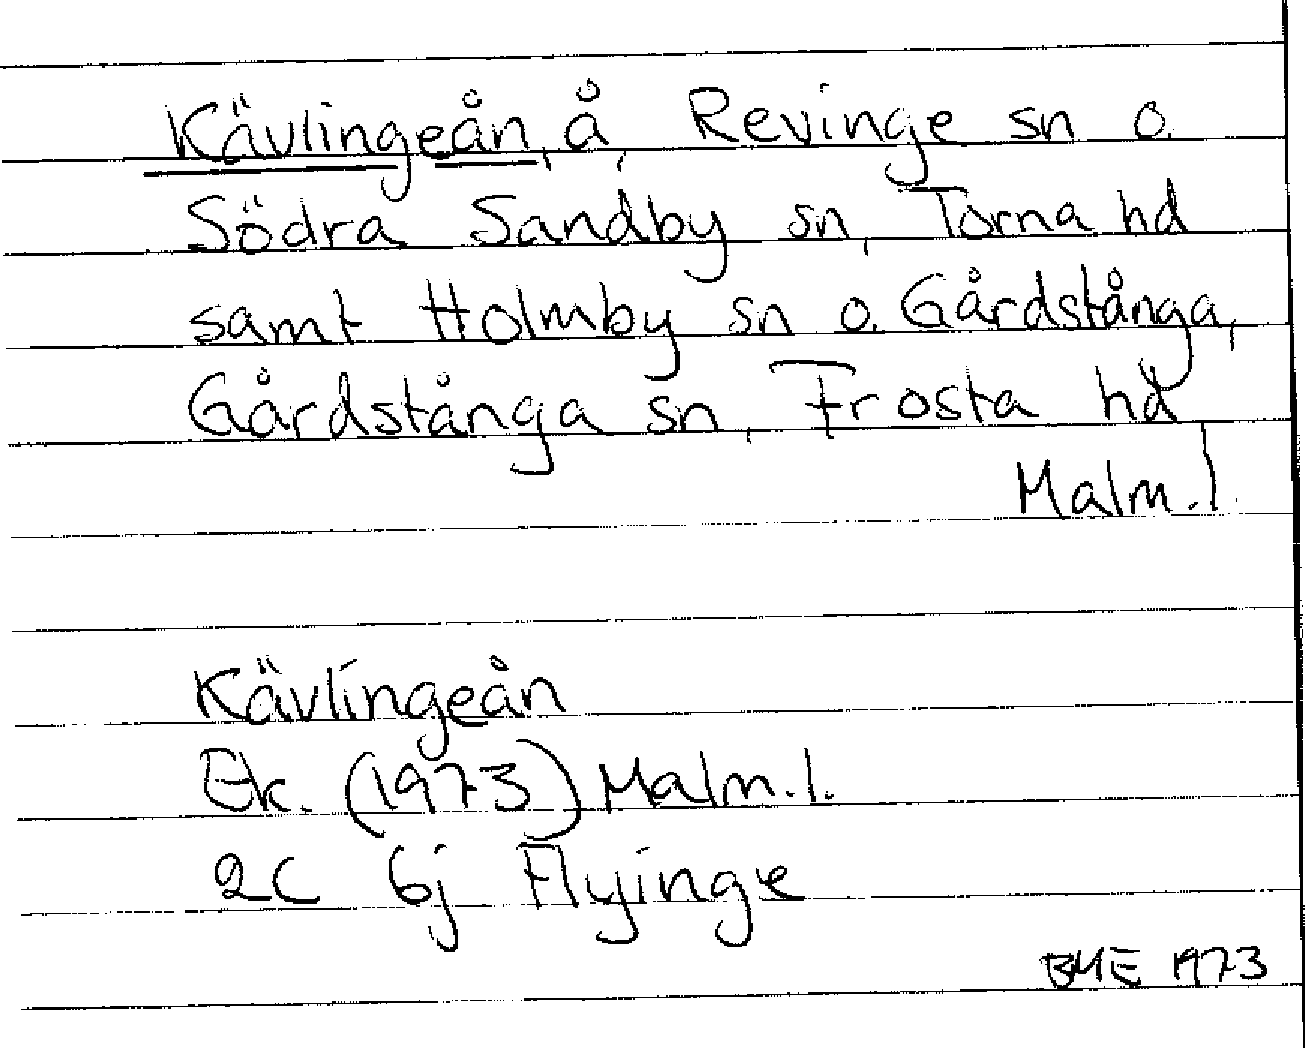 Kävlingeån, å, Revinge sn o.
Södra Sandby sn, Torna hd
samt Holmby sn o. Gårdstånga,
Gårdstånga sn, Frosta hd
Malm.l.
Kävlingeån
Ek. (1973) Malm.l.
2C 6j Flyinge
BME 1973